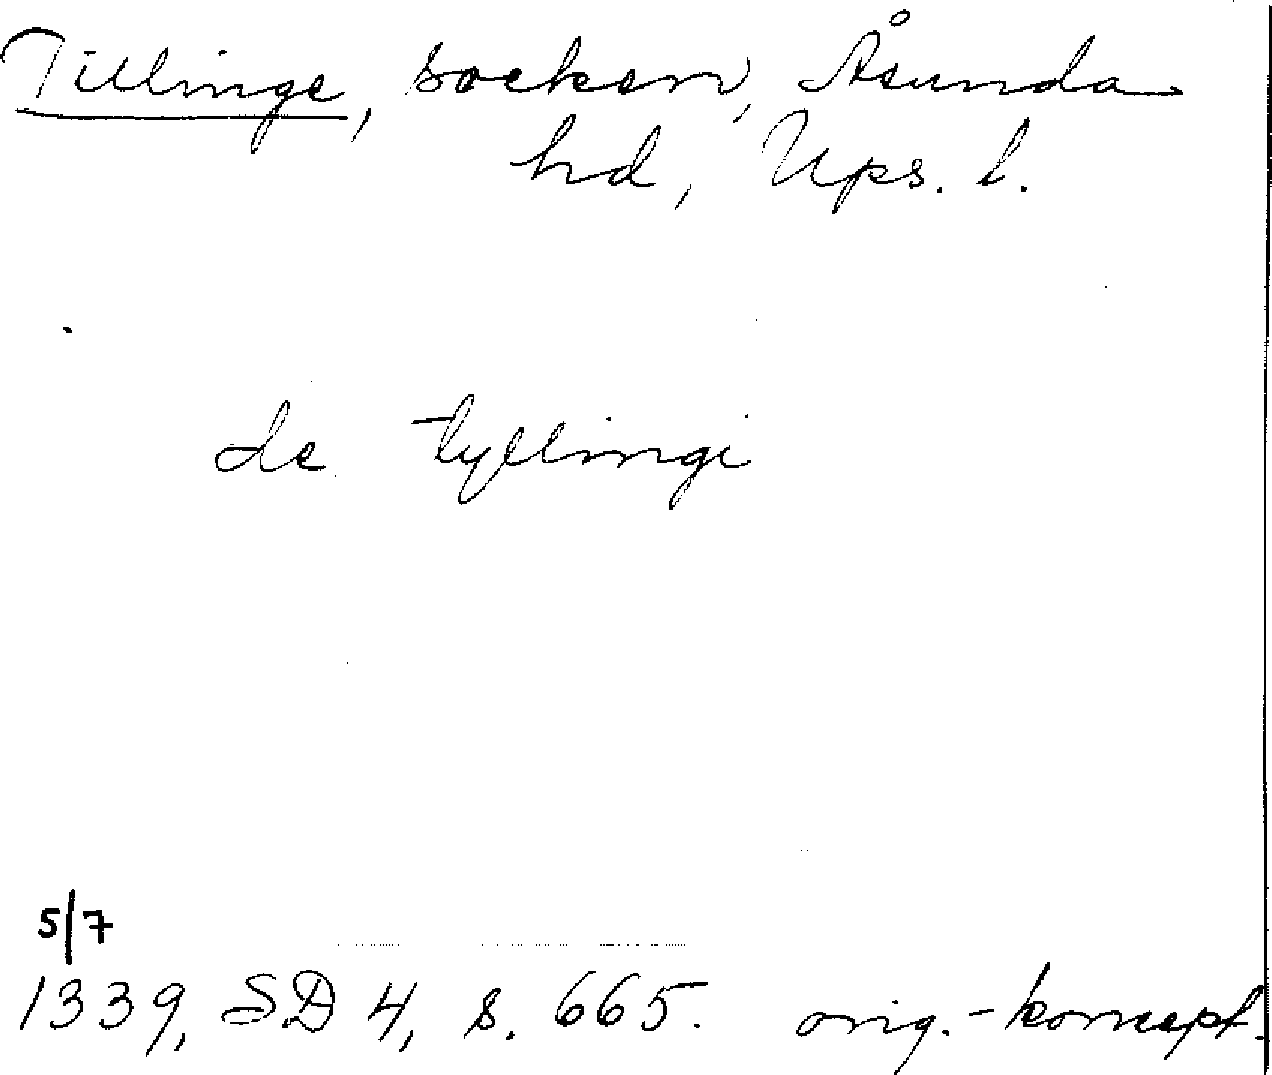 Tillinge, socken, Åsunda
hd, Ups. l.
de tyllingi
5/7
1339, SD 4, s. 665. orig.-koncept.